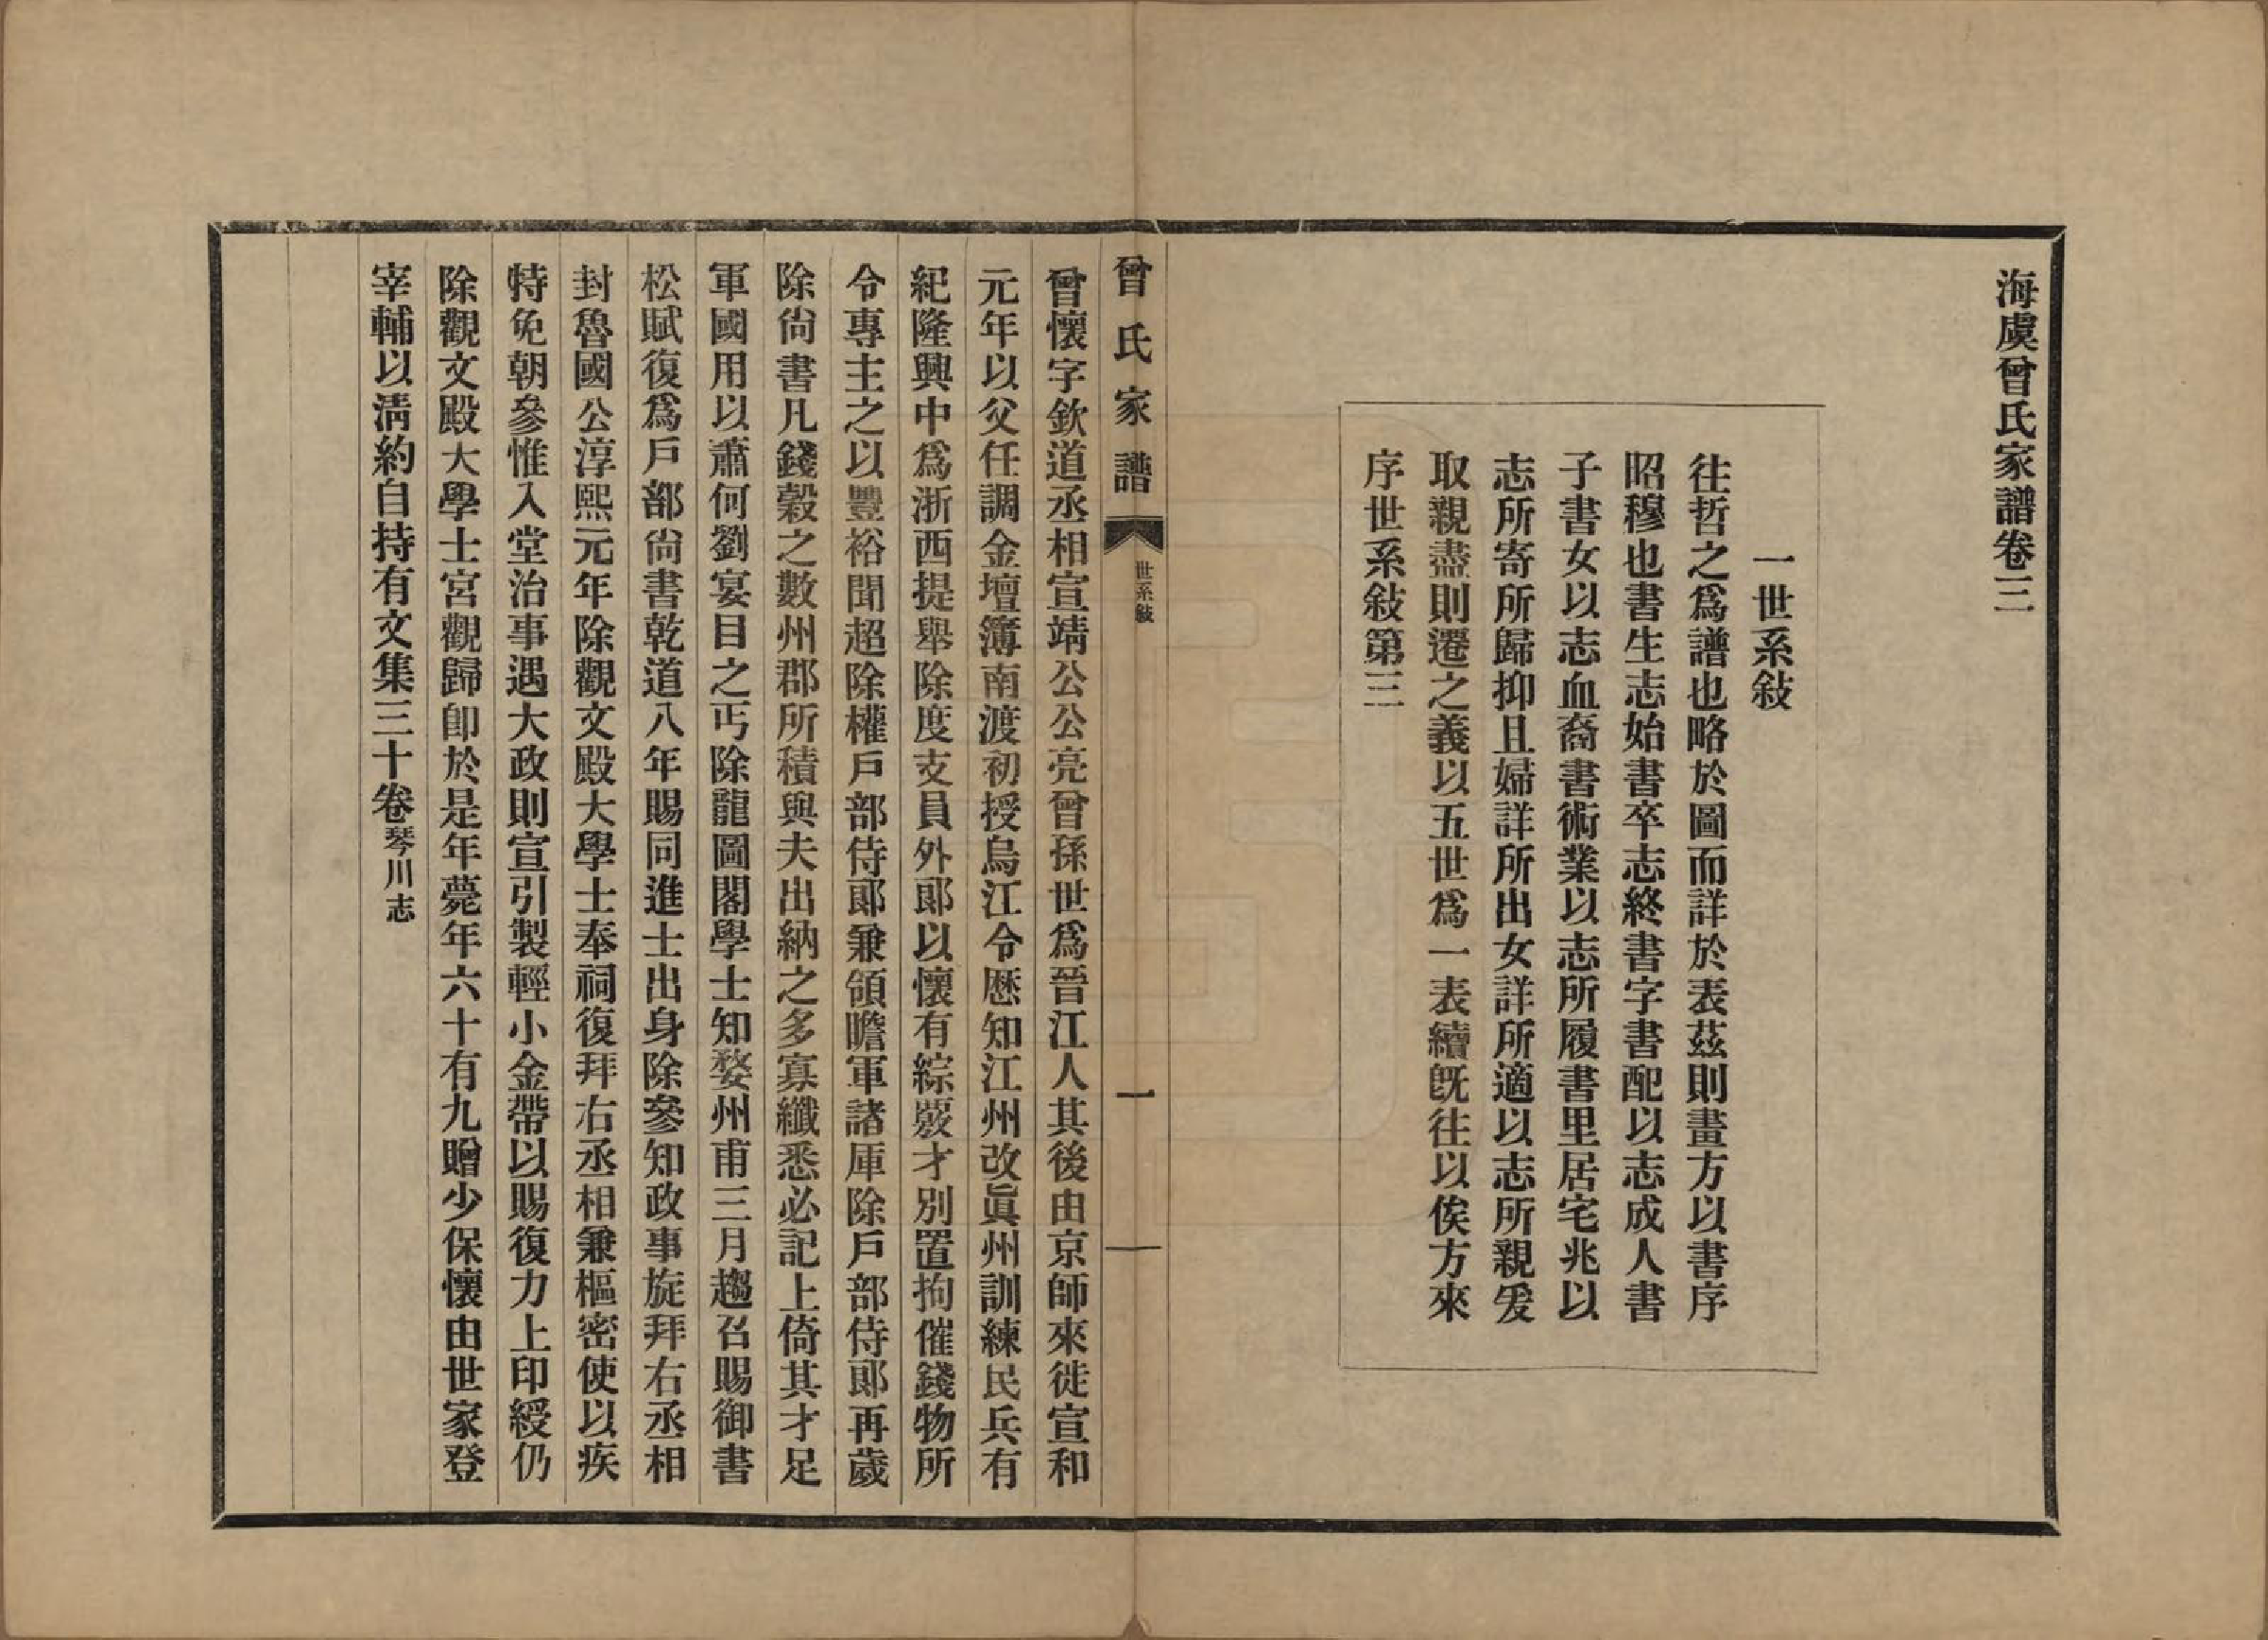 海虞曾氏家譜卷三
一世系敍
往哲之爲譜也略於圖而詳於表茲則畫方以書序
昭穆也書生志始書卒志終書字書配以志成人書
子書女以志血裔書術業以志所履書里居宅兆以
志所寄所歸抑且婦詳所出女詳所適以志所親爰
取親盡則遷之義以五世爲一表續旣往以俟方來
序世系敍第三
曾氏家譜
世系敍
一
曾懷字欽道丞相宣靖公公亮曾孫世爲晉江人其後由京師來徙宣和
元年以父任調金壇簿南渡初授烏江令歷知江州改眞州訓練民兵有
紀隆興中爲浙西提舉除度支員外郞以懷有綜覈才別置拘催錢物所
令專主之以豐裕聞超除權戶部侍郞兼領贍軍諸庫除戶部侍郞再歲
除尙書凡錢穀之數州郡所積與夫出納之多寡纖悉必記上倚其才足
軍國用以蕭何劉宴目之丐除龍圖閣學士知婺州甫三月趨召賜御書
松賦復爲戶部尙書乾道八年賜同進士出身除參知政事旋拜右丞相
封魯國公淳熙元年除觀文殿大學士奉祠復拜右丞相兼樞密使以疾
特免朝參惟入堂治事遇大政則宣引製輕小金帶以賜復力上印綬仍
除觀文殿大學士宮觀歸卽於是年薨年六十有九贈少保懷由世家登
宰輔以淸約自持有文集三十卷琴川志